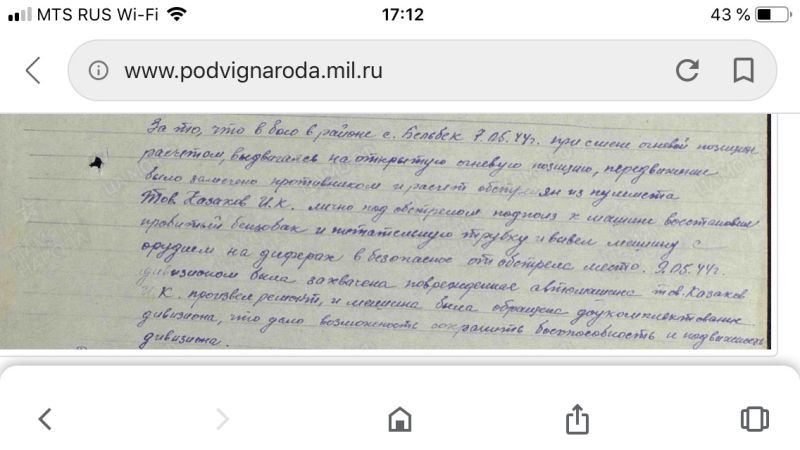 MTS RUS Wi-Fi 17:12 43 %
www.podvignaroda.mil.ru
За то, что в бою в районе с. Бельбек 7.05.44г. при смене огневой позиции
расчетом, выдвигаясь на открытую огневую позицию, передвижение
было замечено противником и расчет обстрелян из пулемета
Тов. Казаков И.К. лично под обстрелом подполз к машине восстановил
пробитый бензобак и питательную трубку и вывел машину с
орудием на диферах в безопасное от обстрела место. 9.05.44г.
дивизионом была захвачена поврежденная автомашина тов. Казаков
И.К. произвел ремонт, и машина была обращена доукомплектование
дивизиона, что дало возможность сохранить боеспособность и подвижность
дивизиона.